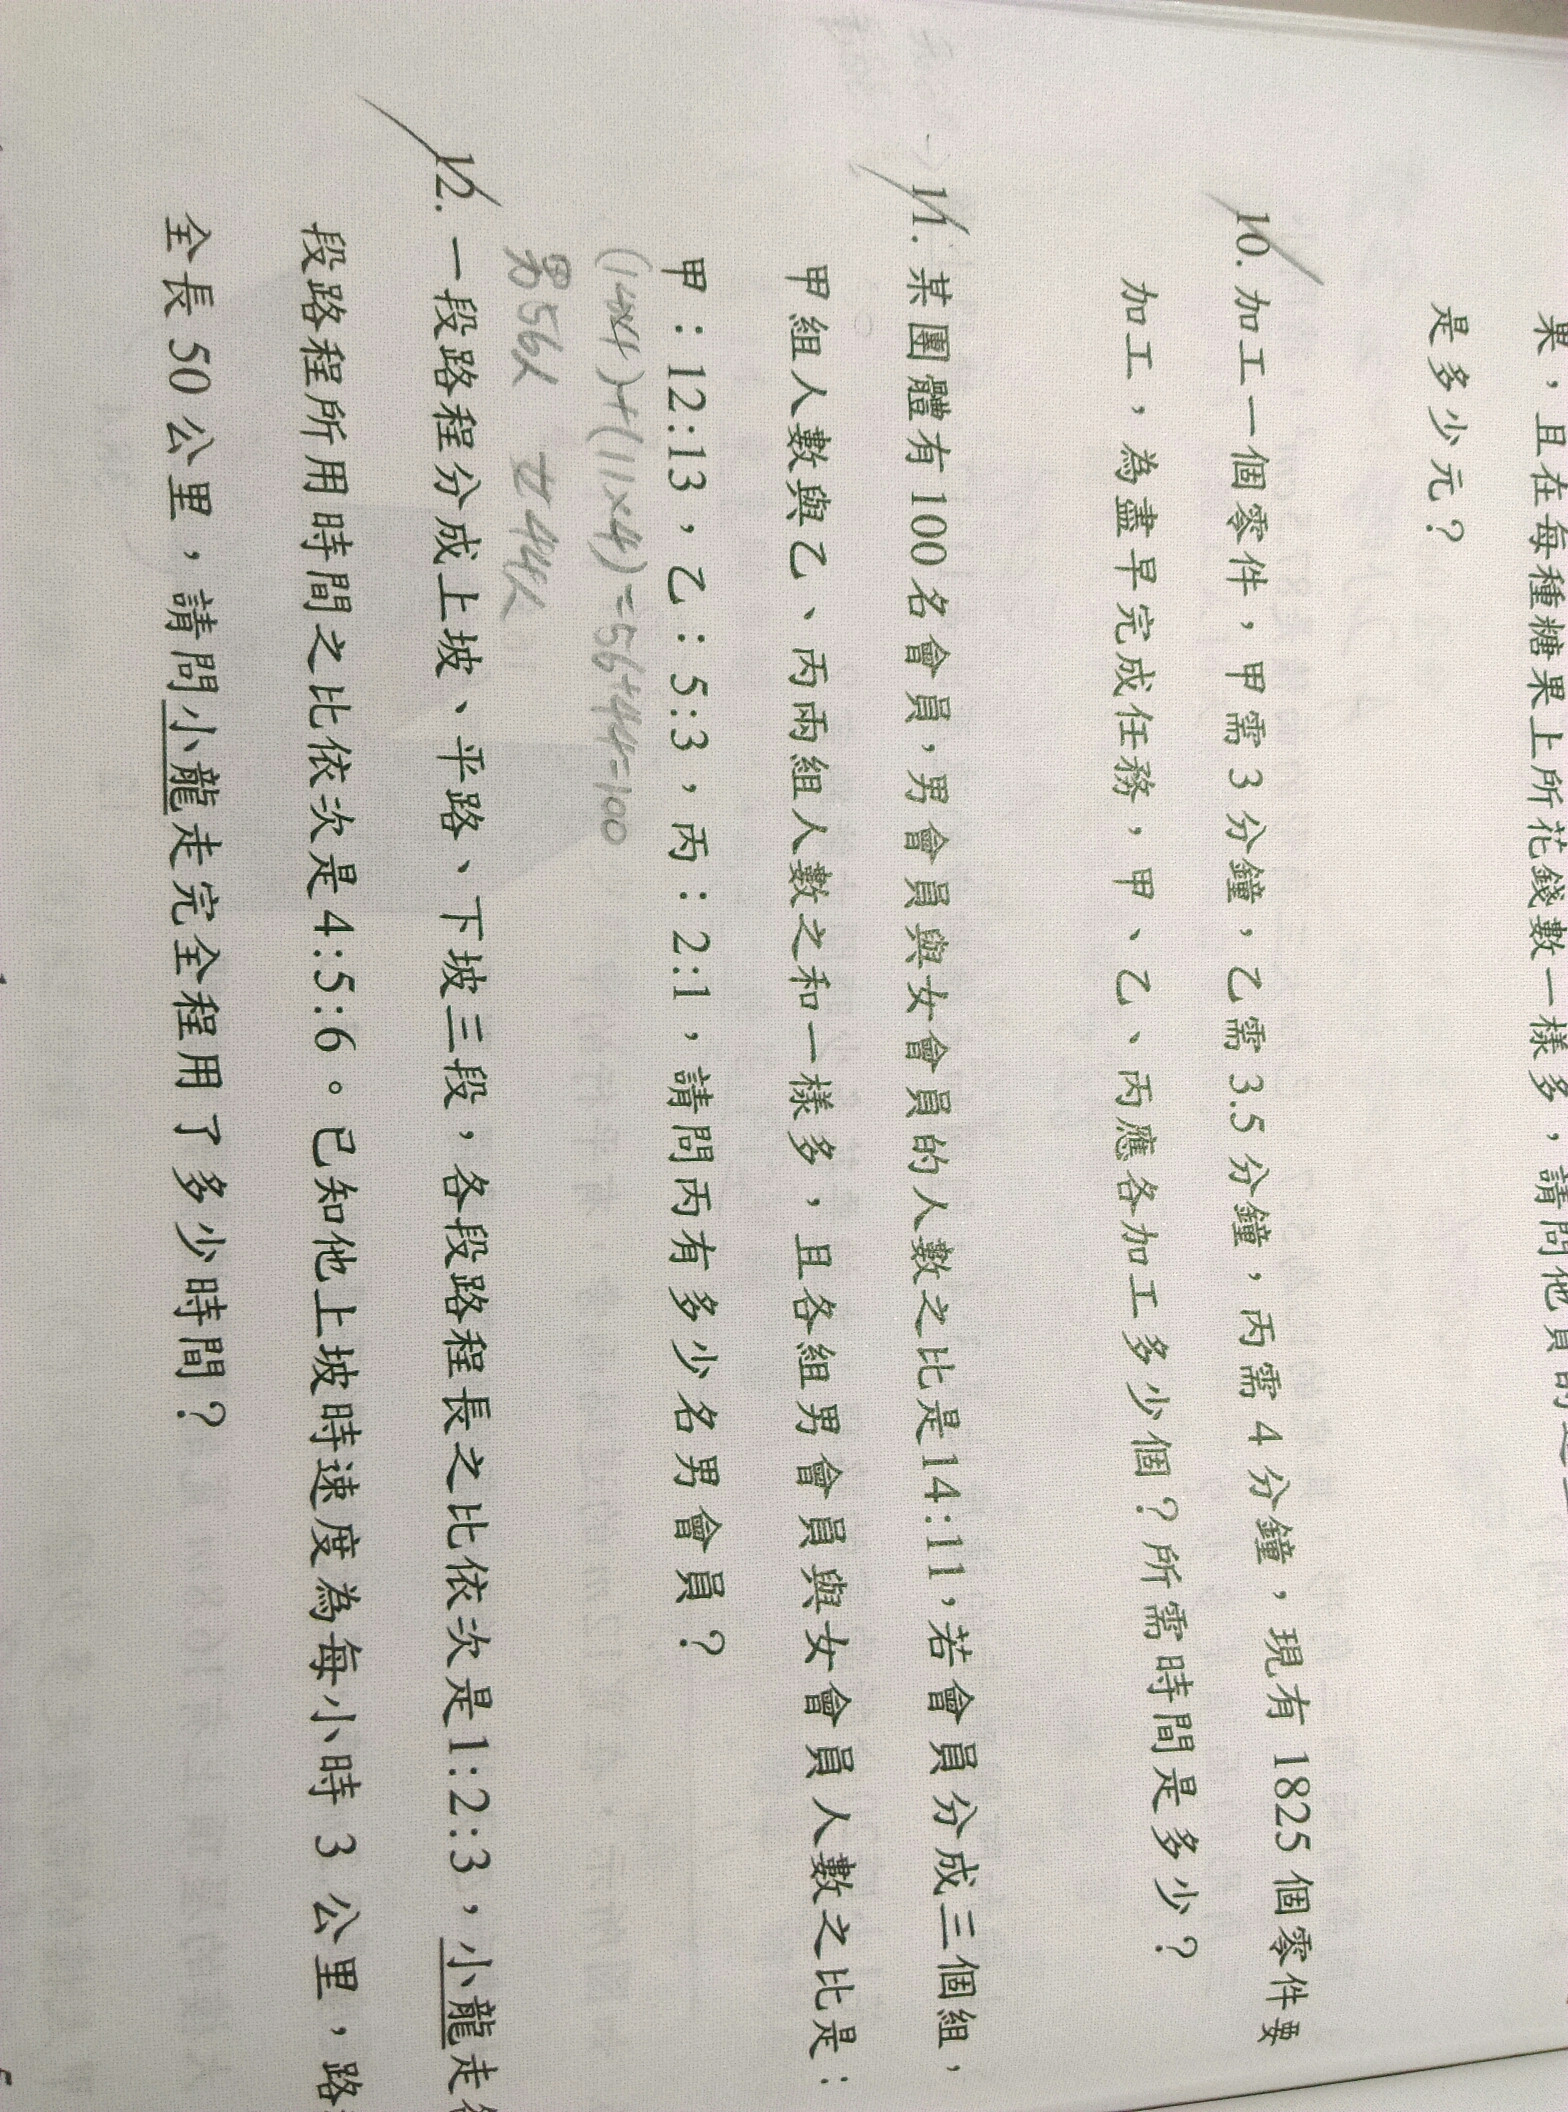 果，且在每種糖果上所花錢數一樣多，請問他買的
是多少元？
10. 加工一個零件，甲需 3 分鐘，乙需 3.5 分鐘，丙需 4 分鐘，現有 1825 個零件要
加工，為盡早完成任務，甲、乙、丙應各加工多少個？所需時間是多少？
11. 某團體有 100 名會員，男會員與女會員的人數之比是14:11，若會員分成三個組，
甲組人數與乙、丙兩組人數之和一樣多，且各組男會員與女會員人數之比是：
甲：12:13，乙：5:3，丙：2:1，請問丙有多少名男會員？
(14×4)+(11×4)=56+44=100
男56人 女44人
12. 一段路程分成上坡、平路、下坡三段，各段路程長之比依次是1:2:3，小龍走
段路程所用時間之比依次是4:5:6。已知他上坡時速度為每小時 3 公里，路
全長 50 公里，請問小龍走完全程用了多少時間？